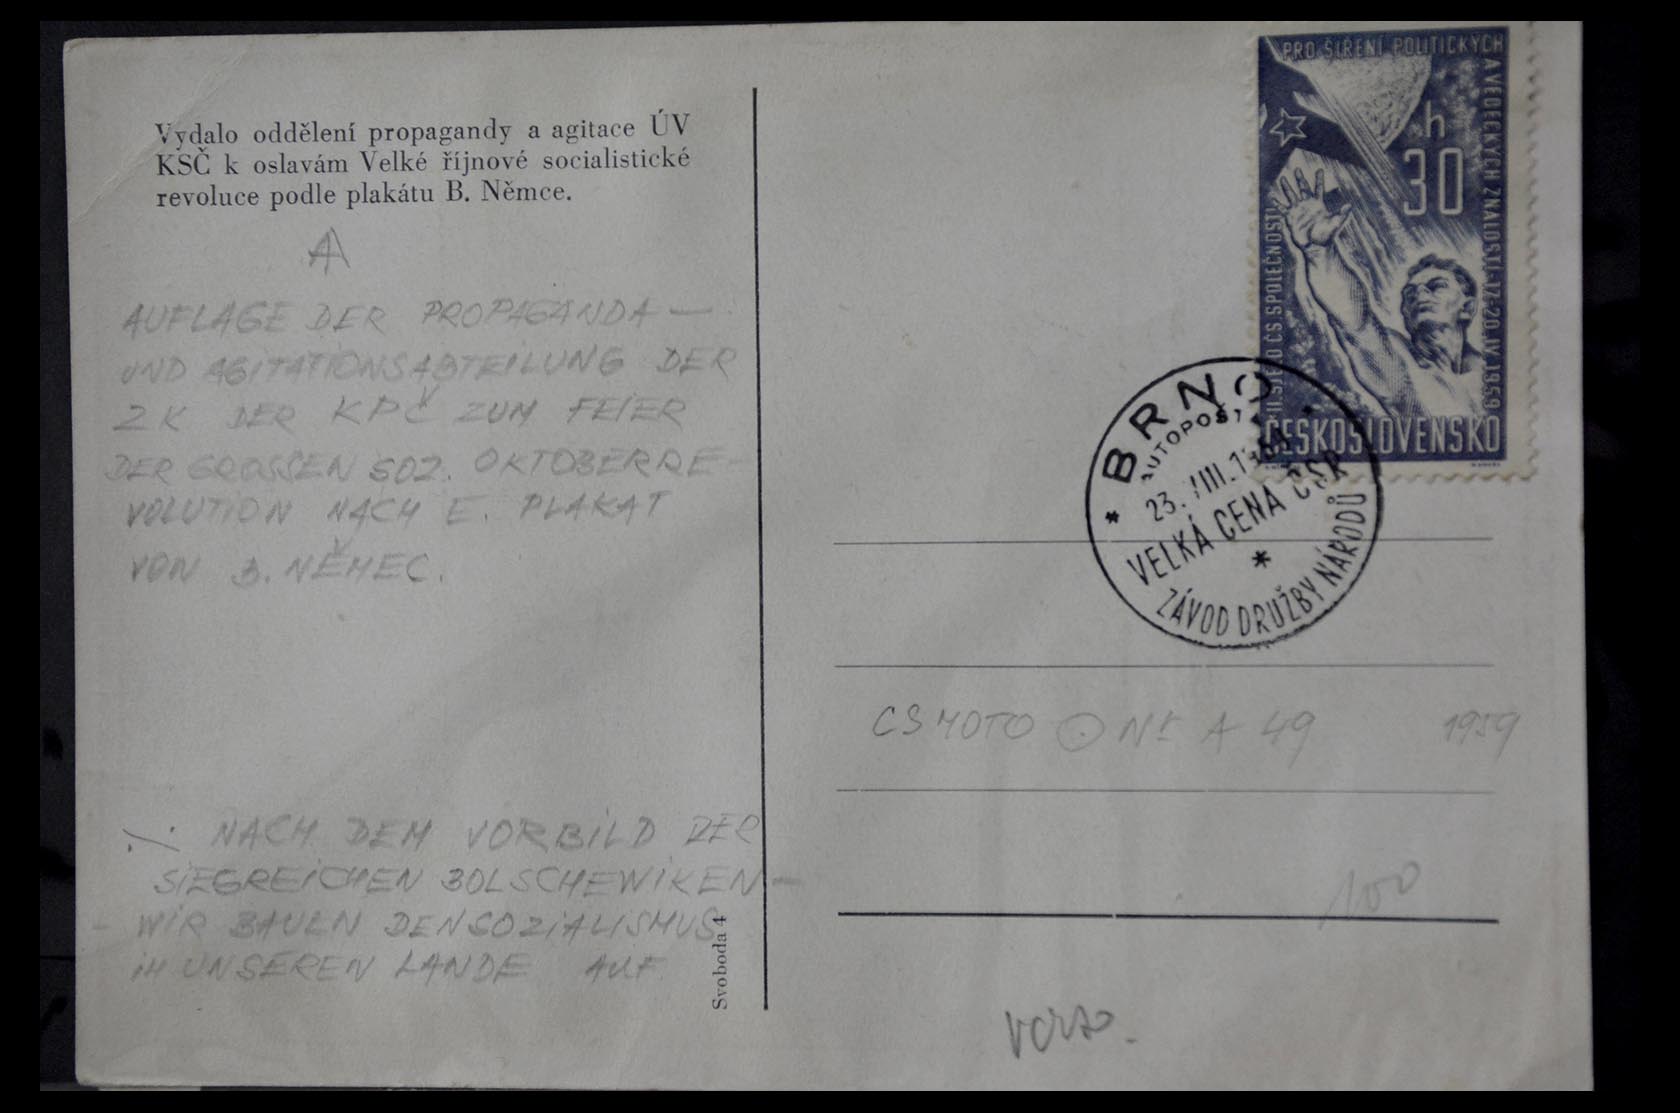 Vydalo oddělení propagandy a agitace ÚV
KSČ k oslavám Velké říjnové socialistické
revoluce podle plakátu B. Němce.
A
AUFLAGE DER PROPAGANDA—
UND AGITATIONSABTEILUNG DER
ZK DER KPČ ZUM FEIER
DER GROSSEN SOZ. OKTOBERRE–
VOLUTION NACH E. PLAKAT
VON B. NĚMEC.
NACH DEM VORBILD DER
SIEGREICHEN BOLSCHEWIKEN –
WIR BAUEN DEN SOZIALISMUS
IN UNSEREN LANDE AUF
Svoboda 4
PRO ŠÍŘENÍ POLITICKÝCH
A VĚDECKÝCH ZNALOSTÍ-17-20.IV.1959
h
30
II. SJEZD ČS SPOLEČNOSTI
ČESKOSLOVENSKO
* BRNO
AUTOPOŠTA
23. VIII.
VELKÁ CENA ČSR
*
ZÁVOD DRUŽBY NÁRODŮ
CS MOTO Nr A 49 1959
100
VERSO.